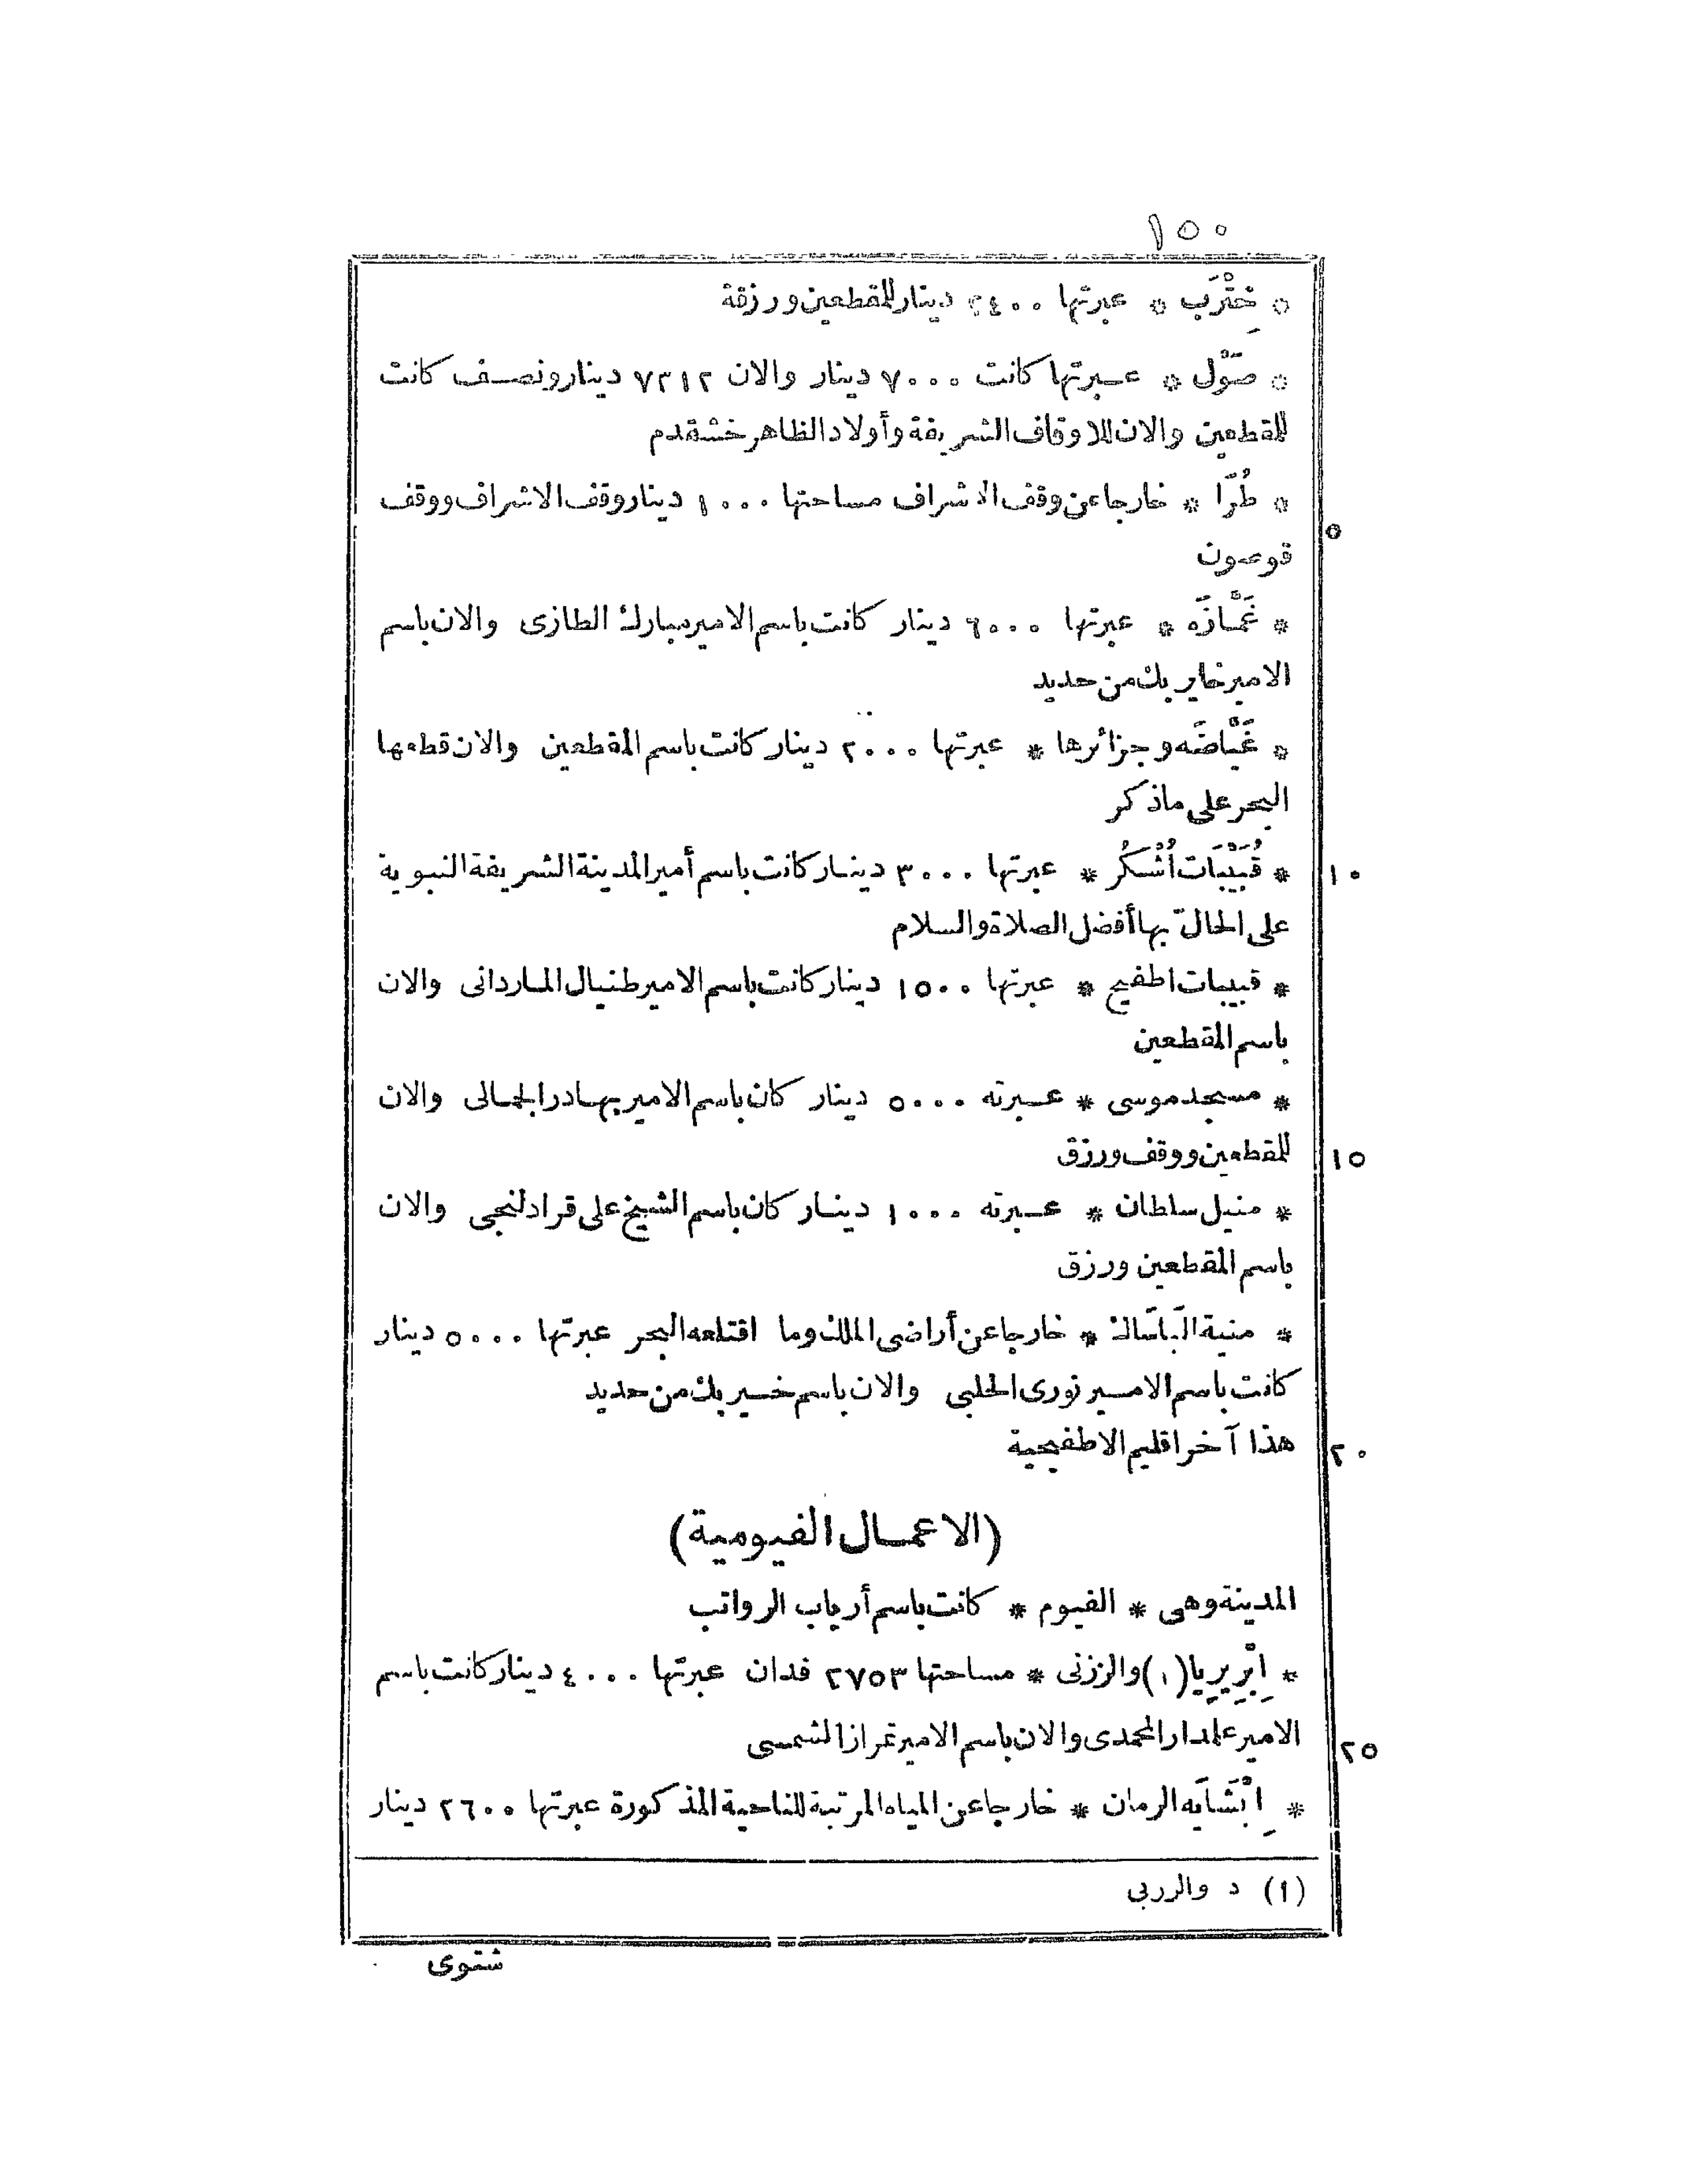 ١٥٠
* خِتْرَب * عبرتها ٢٤٠٠ دينار للمقطعين ورزقة
* صَوْل * عبرتها كانت ٧٠٠٠ دينار والان ٧٣١٢ دينار ونصف كانت
للمقطعين والان للاوقاف الشريفة وأولاد الظاهر خشقدم
* طُرّا * خارجا عن وقف الاشراف مساحتها ١٠٠٠ دينار وقف الاشراف ووقف
٥
قوصون
* غَمَّازَه * عبرتها ٦٠٠٠ دينار كانت باسم الامير مبارك الطازى والان باسم
الامير خاير بك من حديد
* غَيَّاضَه وجزائرها * عبرتها ٢٠٠٠ دينار كانت باسم المقطعين والان قطعها
البحر على ماذكر
* قُبَيْبَات أُشْكُر * عبرتها ٣٠٠٠ دينار كانت باسم أمير المدينة الشريفة النبوية ١٠
على الحالّ بها أفضل الصلاة والسلام
* قبيبات اطفيح * عبرتها ١٥٠٠ دينار كانت باسم الامير طنيال الماردانى والان
باسم المقطعين
* مسجد موسى * عبرته ٥٠٠٠ دينار كان باسم الامير بهادر الجمالى والان
للمقطعين ووقف ورزق ١٥
* منيل سلطان * عبرته ١٠٠٠ دينار كان باسم الشيخ على قرادلنجى والان
باسم المقطعين ورزق
* منية الَباسَاك * خارجا عن أراضى الملك وما اقتلعه البحر عبرتها ٥٠٠٠ دينار
كانت باسم الامير نورى الحلبى والان باسم خير بك من حديد
هذا آخر اقليم الاطفيحية ٢٠
(الاعمال الفيومية)
المدينة وهى * الفيوم * كانت باسم أرباب الرواتب
* اِبْرِيرِيا (١) والرزنى * مساحتها ٢٧٥٣ فدان عبرتها ٤٠٠٠ دينار كانت باسم
الامير علمدار المحمدى والان باسم الامير تمراز الشمسى ٢٥
* اِبْشَايَه الرمان * خارجا عن المياه المرتبة للناحية المذكورة عبرتها ٢٦٠٠ دينار
(١) د والرربى
شتوى